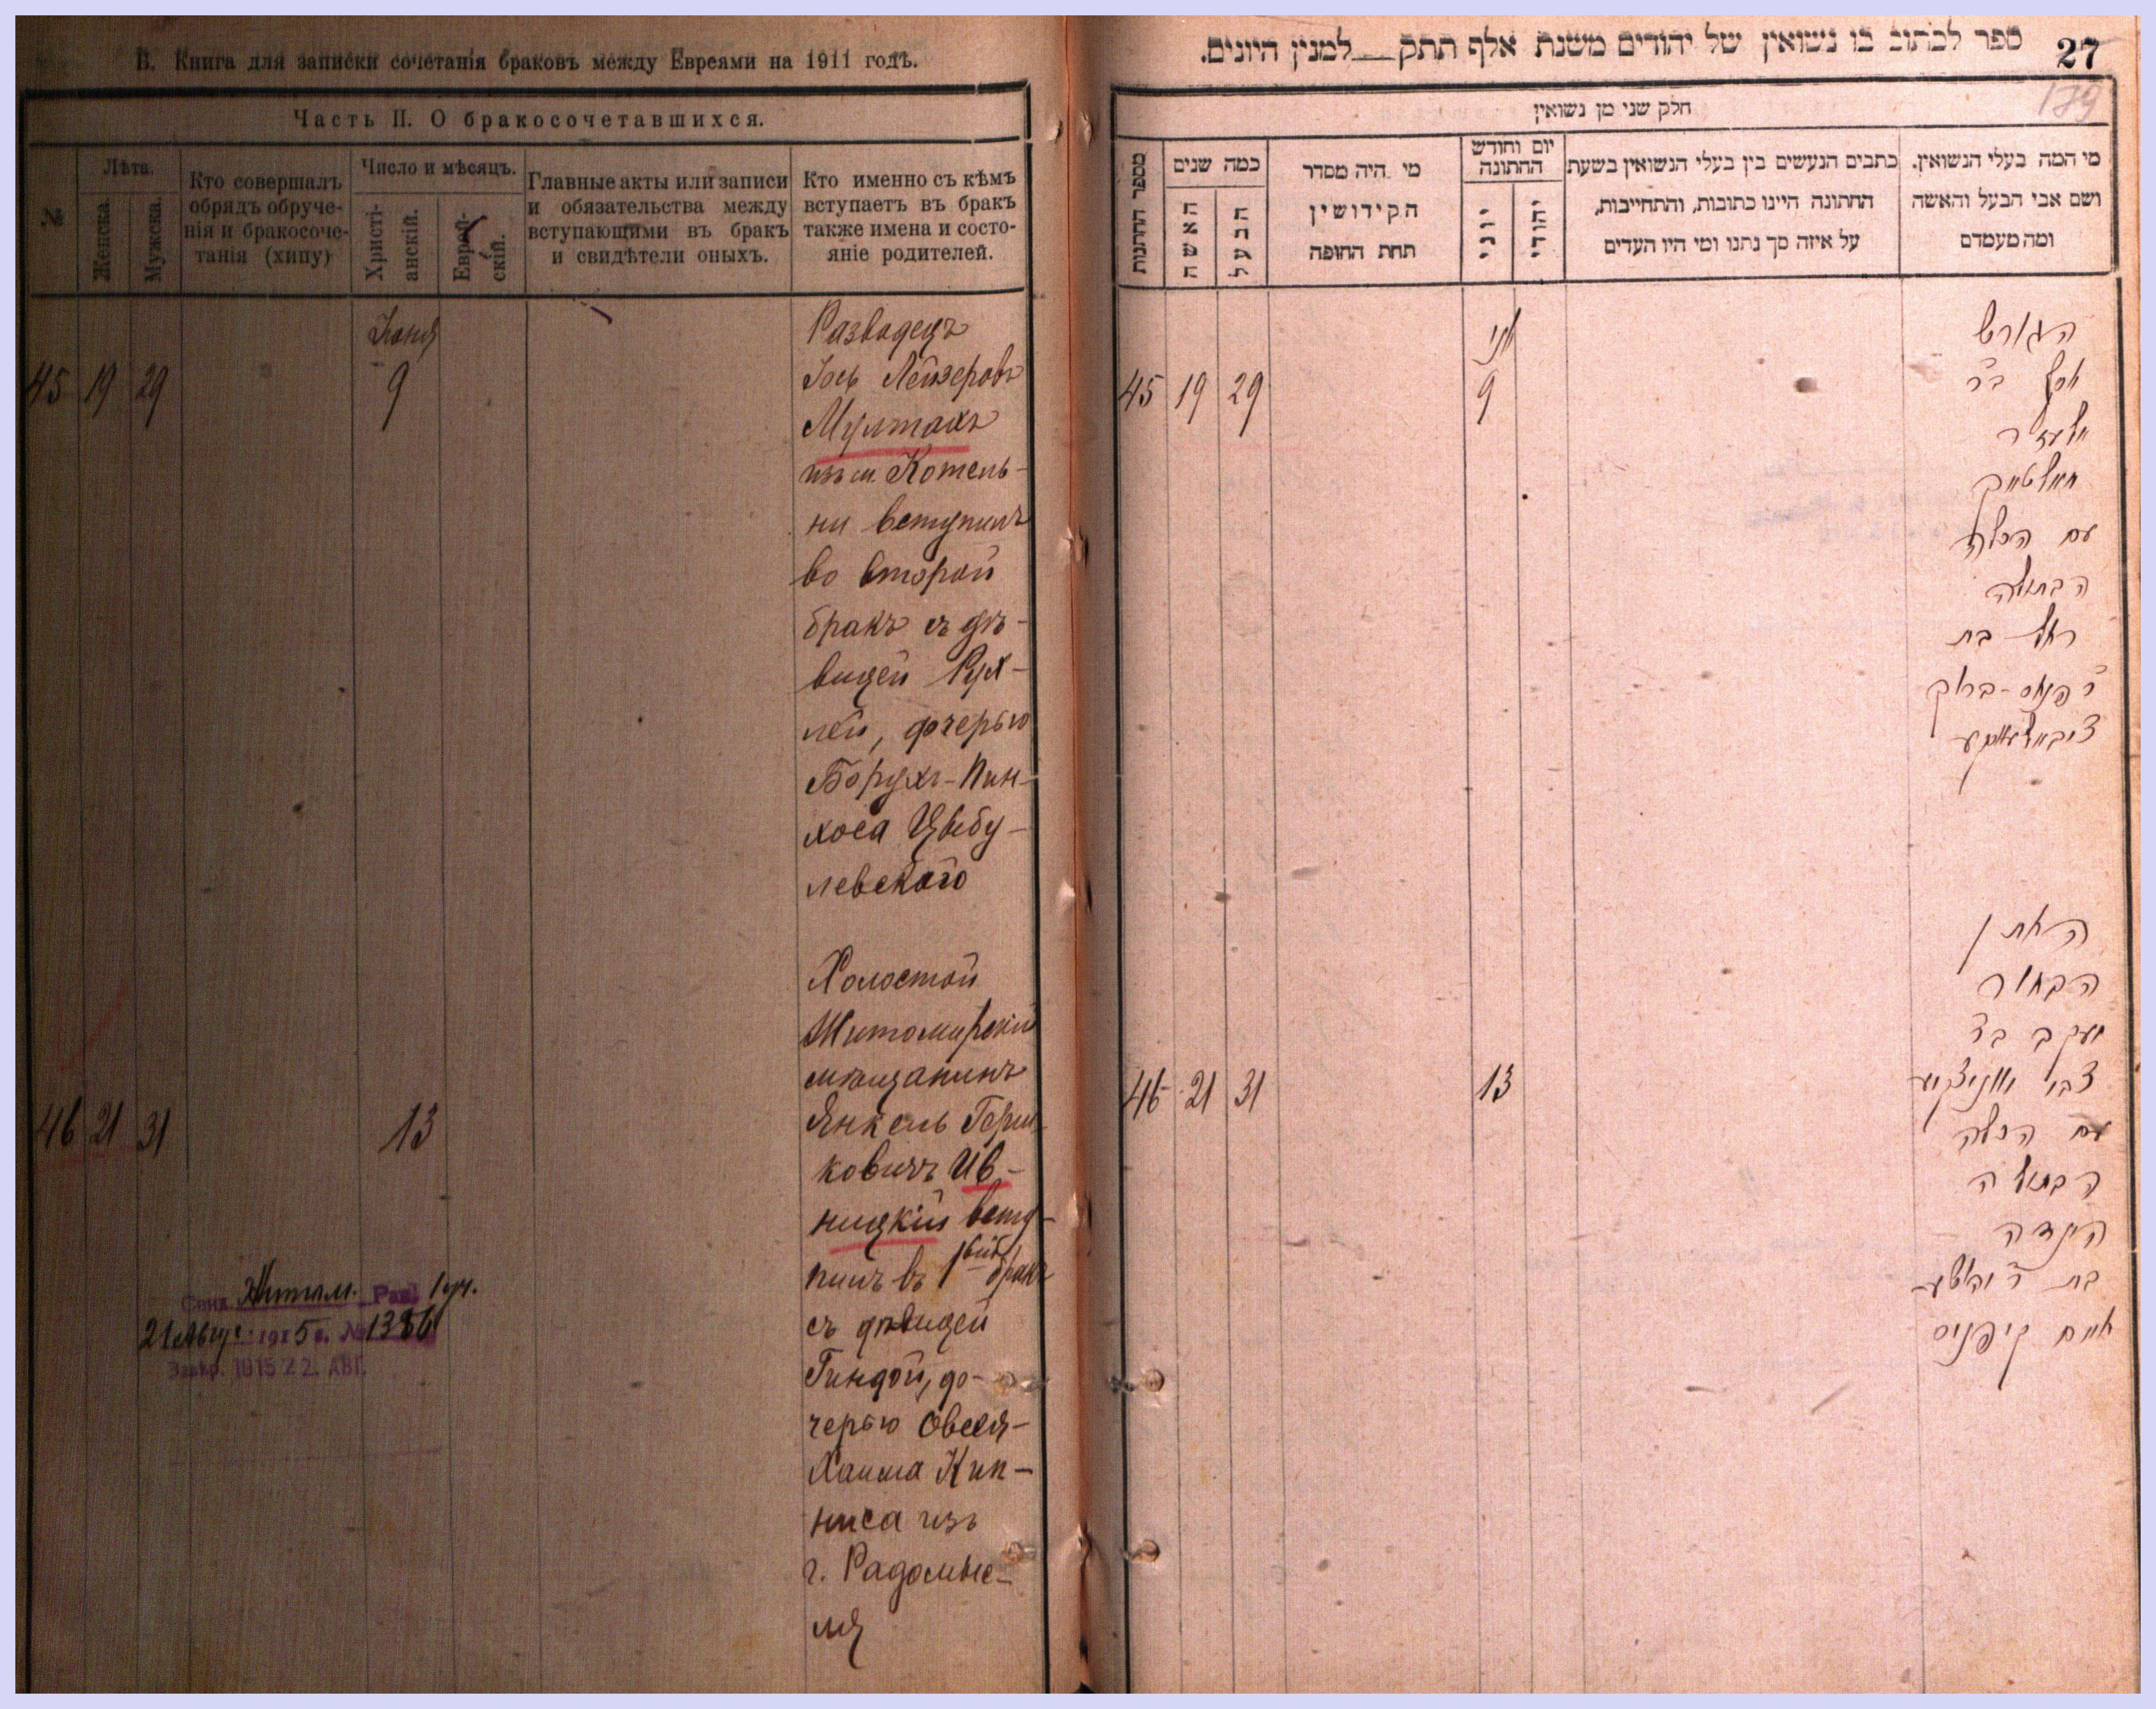 В. Книга для записки сочетанія браковъ между Евреями на 1911 годъ.
Часть II. О бракосочетавшихся.
№
Лѣта.
Женска.
Мужеска.
Кто совершалъ
обрядъ обруче-
нія и бракосоче-
танія (хипу)
Число и мѣсяцъ.
Христі-
анскій.
Еврей-
скій.
Главные акты или записи
и обязательства между
вступающими въ бракъ
и свидѣтели оныхъ.
Кто именно съ кѣмъ
вступаетъ въ бракъ
также имена и состо-
яніе родителей.
Іюня
45 19 29 9
Разводецъ
Іось Лейзеровъ
Мултакъ
изъ м. Котель-
ни вступилъ
во второй
бракъ съ дѣ-
вицей Рух-
лей, дочерью
Борухъ-Пин-
хоса Цыбу-
левского
46 21 31 13
Холостой
Житомирскій
мѣщанинъ
Янкель Герш-
ковичъ Ив-
ницкій всту-
пилъ въ 1вый бракъ
съ дѣвицей
Гиндой, до-
черью Овсея-
Хаима Кип-
ниса изъ
г. Радомыс-
ля
Житом. 1 уч.
21 Авгус. 1915 г. № 1386
1915 22. АВГ.
ספר לכתוב בו נשואין של יהודים משנת אלף תתק__למנין היונים.
27
179
חלק שני מן נשואין
מספר החתונות
כמה שנים
האשה
הבעל
מי היה מסדר
הקידושין
תחת החופה
יום וחודש
החתונה
יוני
יהודי
כתבים הנעשים בין בעלי הנשואין בשעת
החתונה היינו כתובות, והתחייבות,
על איזה סך נתנו ומי היו העדים
מי המה בעלי הנשואין.
ושם אבי הבעל והאשה
ומה מעמדם
יוני
45 19 29 9
הגורש
יוסף בר
אלעזר
מולטאק
עם הכלה
הבתולה
רחל בת
ר פנחס-ברוך
46 21 31 13
החתן
הבחור
יעקב בר
צבי
עם הכלה
הבתולה
הינדה
בת ר יהושע
חיים קיפניס